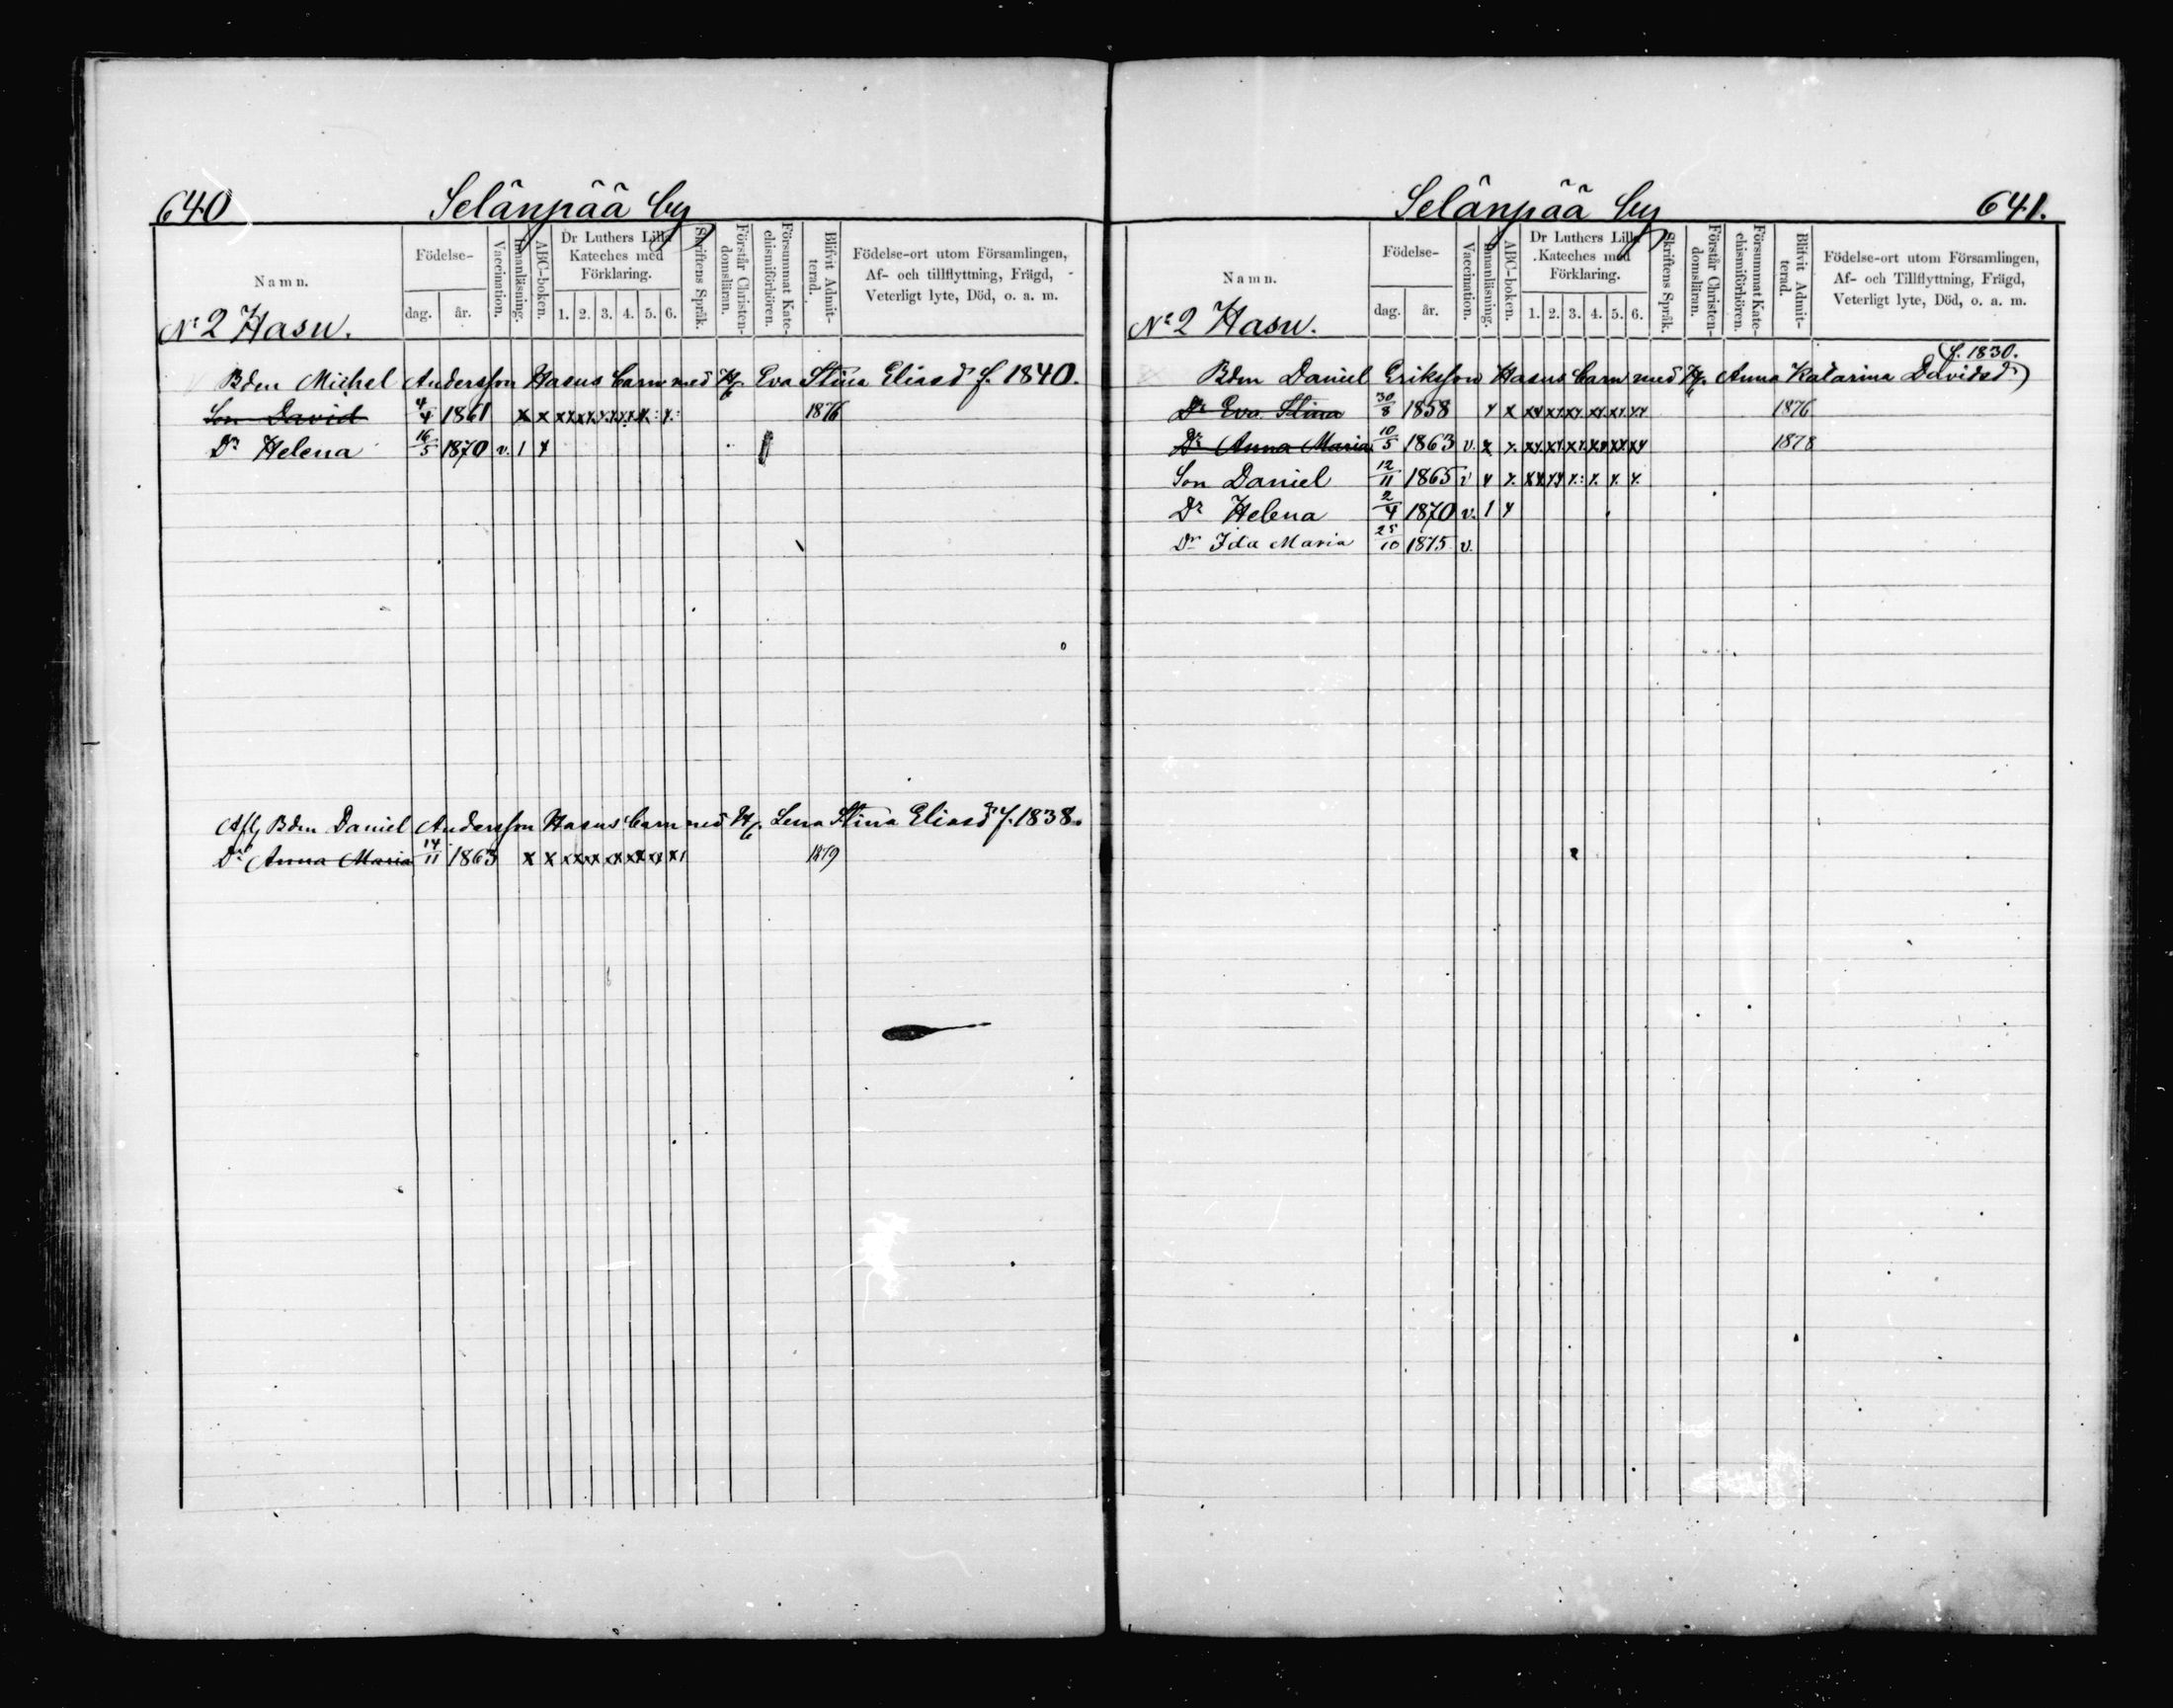 640 Selänpää by
Namn. Födelse- dag. år. Vaccination. Innanläsning. ABC-boken. Dr Luthers Lilla Kateches med Förklaring. 1. 2. 3. 4. 5. 6. Skriftens Språk. Förstår Christen-domsläran. Försummat Kate-chismiförhören. Blifvit Admit-terad. Födelse-ort utom Församlingen, Af- och tillflyttning, Frägd, Veterligt lyte, Död, o. a. m.
No 2 Hasu.
Bden Michel Andersson Hasus barn med Hu Eva Stina Eliasdr f. 1840.
Son David 4/4 1861 x x xx xx xx xx x: x: 1876
Dr Helena 16/5 1870 v. 1 x
Afl. Bden Daniel Andersson Hasus barn med Hu Lena Stina Eliasdr f. 1838.
Dr Anna Maria 14/11 1863 x x xx xx xx xx xx x1 1879
Selänpää by 641.
Namn. Födelse- dag. år. Vaccination. Innanläsning. ABC-boken. Dr Luthers Lilla Kateches med Förklaring. 1. 2. 3. 4. 5. 6. Skriftens Språk. Förstår Christen-domsläran. Försummat Kate-chismiförhören. Blifvit Admit-terad. Födelse-ort utom Församlingen, Af- och Tillflyttning, Frägd, Veterligt lyte, Död, o. a. m.
No 2 Hasu.
f. 1830.
Bden Daniel Eriksson Hasus barn med Hu Anna Katarina Davidsdr)
Dr Eva Stina 30/8 1858 x x xx xx xx xx xx xx 1876
Dr Anna Maria 10/5 1863 v. x x. xx xx xx xx xx xx 1878
Son Daniel 12/11 1865 v x x. xx xx x: x. x. x.
Dr Helena 2/4 1870 v. 1 x
Dr Ida Maria 25/10 1875 v.